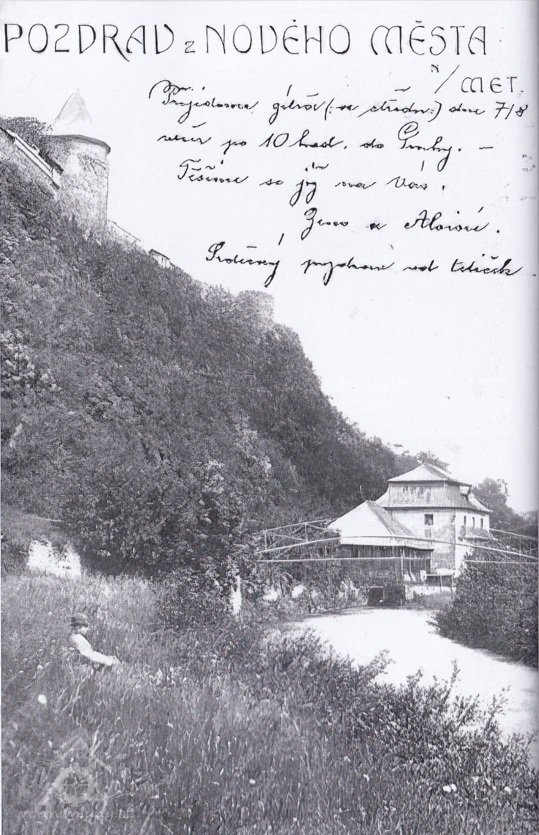 POZDRAV z NOVÉHO MĚSTA
N/MET.
Přijedeme (: ve středu :) dne 7/8
večer po 10 hod. do Prahy. –
Těšíme se již na Vás.
a Aloisie.
Srdečný pozdrav od tetiček